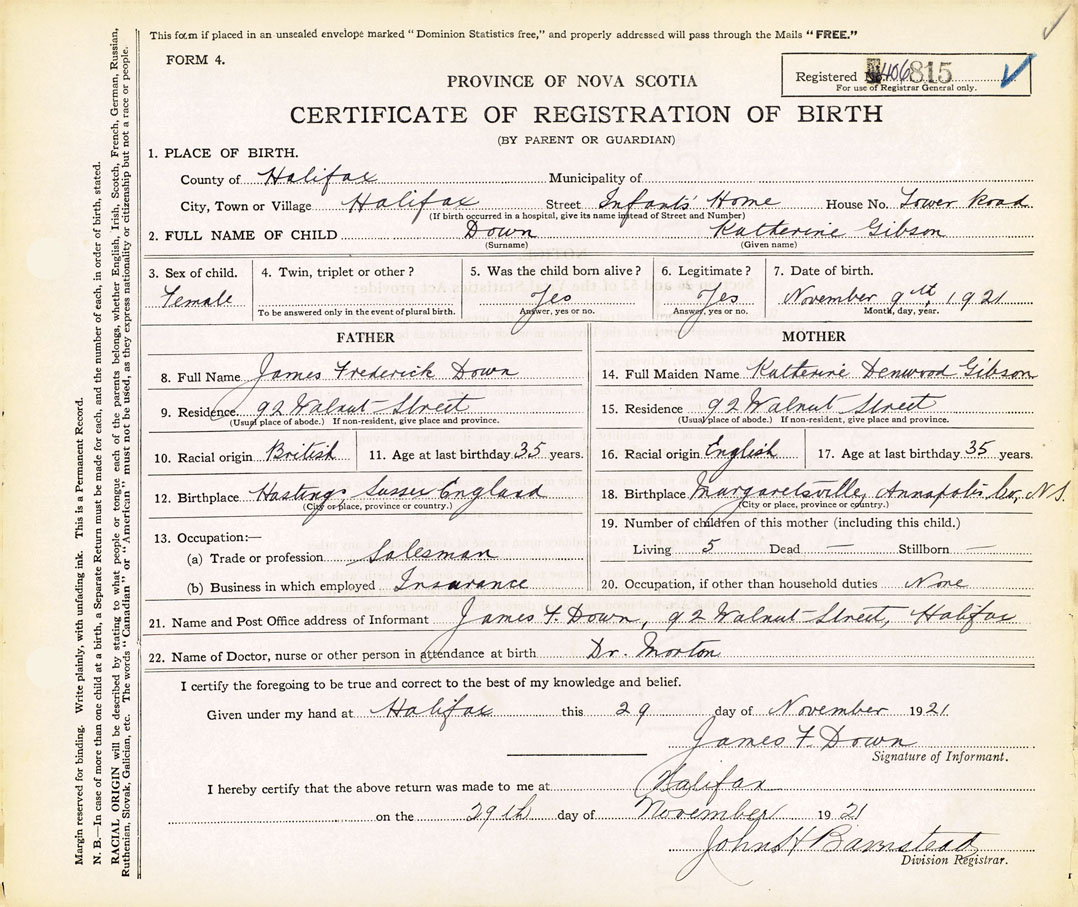 This form if placed in an unsealed envelope marked "Dominion Statistics free," and properly addressed will pass through the Mails "FREE."
FORM 4.
Registered No. 406815
For use of Registrar General only.
PROVINCE OF NOVA SCOTIA
CERTIFICATE OF REGISTRATION OF BIRTH
(BY PARENT OR GUARDIAN)
1. PLACE OF BIRTH.
County of Halifax Municipality of
City, Town or Village Halifax Street Infants' Home House No. Tower Road
(If birth occurred in a hospital, give its name instead of Street and Number)
2. FULL NAME OF CHILD Down Katherine Gibson
(Surname) (Given name)
3. Sex of child. 4. Twin, triplet or other? 5. Was the child born alive? 6. Legitimate? 7. Date of birth.
Female Yes Yes November 9th, 1921
To be answered only in the event of plural birth. Answer, yes or no. Answer, yes or no. Month, day, year.
FATHER MOTHER
8. Full Name James Frederick Down 14. Full Maiden Name Katherine Denwood Gibson
9. Residence 92 Walnut Street 15. Residence 92 Walnut Street
(Usual place of abode.) If non-resident, give place and province. (Usual place of abode.) If non-resident, give place and province.
10. Racial origin British 11. Age at last birthday 35 years. 16. Racial origin English 17. Age at last birthday 35 years.
12. Birthplace Hastings Sussex England 18. Birthplace Margaretsville, Annapolis Co., N.S.
(City or place, province or country.) (City or place, province or country.)
13. Occupation:— 19. Number of children of this mother (including this child.)
(a) Trade or profession Salesman Living 5 Dead — Stillborn —
(b) Business in which employed Insurance 20. Occupation, if other than household duties None
21. Name and Post Office address of Informant James F. Down, 92 Walnut Street, Halifax
22. Name of Doctor, nurse or other person in attendance at birth Dr. Morton
I certify the foregoing to be true and correct to the best of my knowledge and belief.
Given under my hand at Halifax this 29 day of November 1921
James F. Down
Signature of Informant.
I hereby certify that the above return was made to me at Halifax
on the 29th day of November 1921
John H Barnstead
Division Registrar.
Margin reserved for binding. Write plainly, with unfading ink. This is a Permanent Record.
N. B.—In case of more than one child at a birth, a Separate Return must be made for each, and the number of each, in order of birth, stated.
RACIAL ORIGIN will be described by stating to what people or tongue each of the parents belongs, whether English, Irish, Scotch, French, German, Russian,
Ruthenian, Slovak, Galician, etc. The words "Canadian" or "American" must not be used, as they express nationality or citizenship but not a race or people.